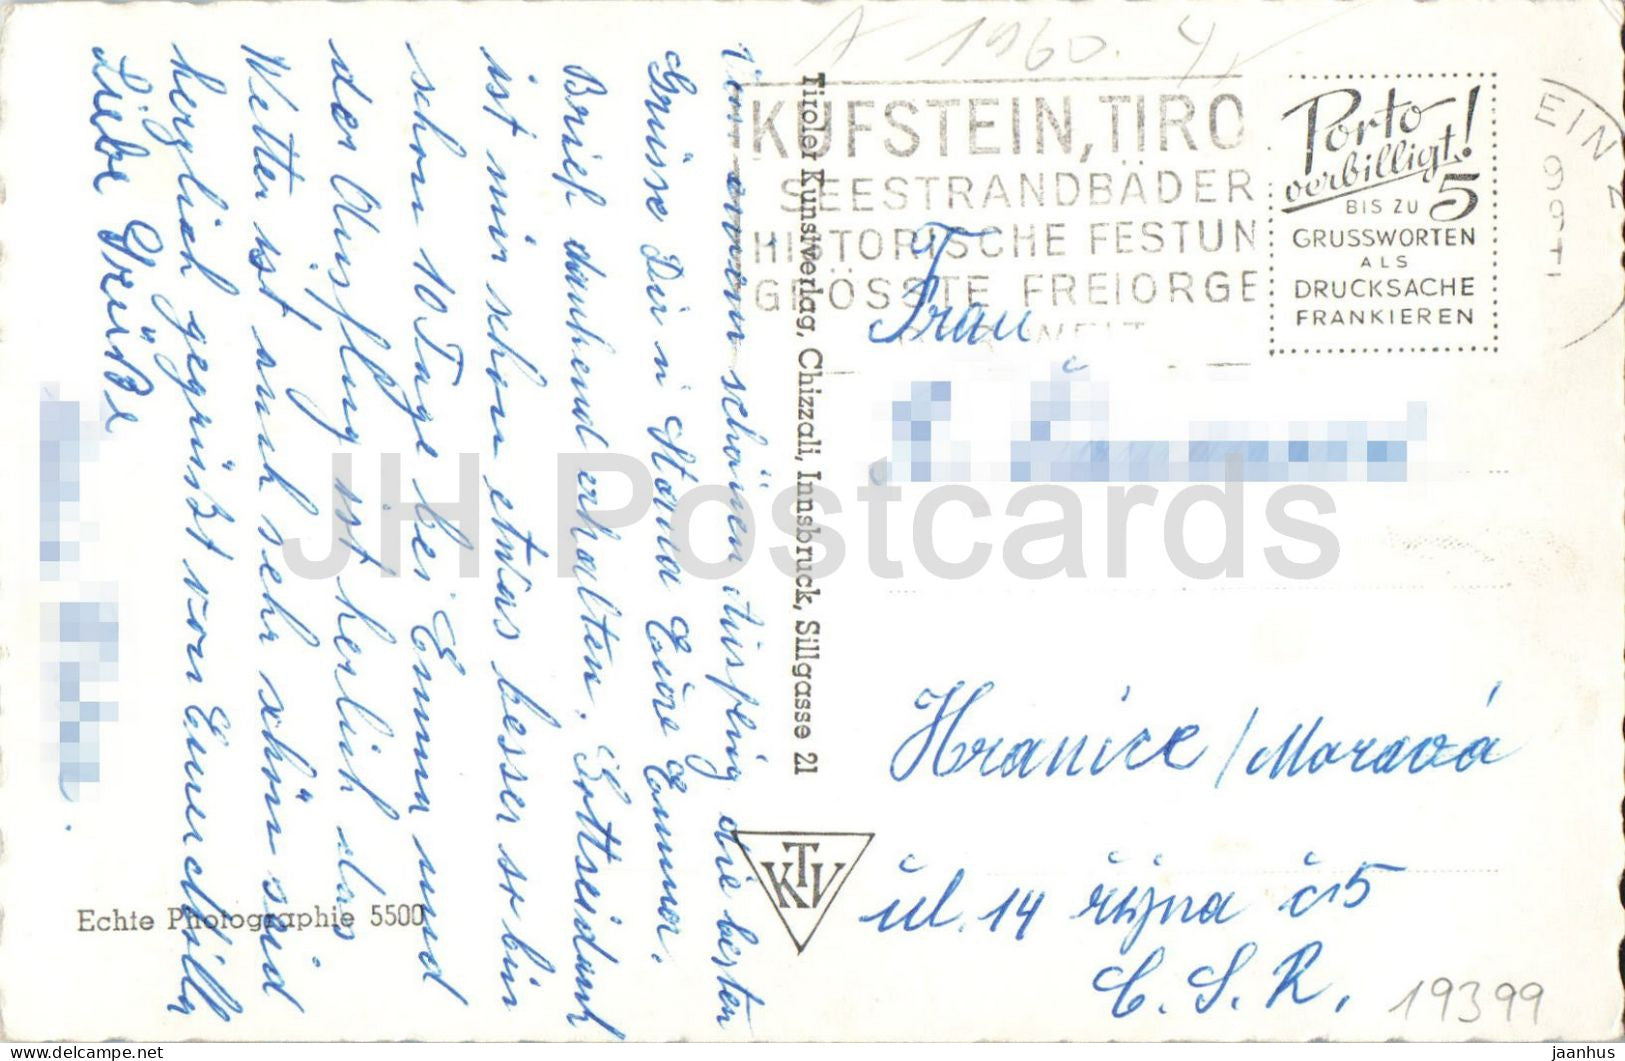 A 1960.
KUFSTEIN, TIRO
SEESTRANDBÄDER
HISTORISCHE FESTUN
GRÖSSTE FREIORGE
Porto
verbilligt!
BIS ZU 5
GRUSSWORTEN
ALS
DRUCKSACHE
FRANKIEREN
EIN
Von einem schönen Ausflug die besten
Grüsse Dir u Stana Eure Emma.
Brief dankend erhalten. Gottseidank
ist mir schon etwas besser so bin
schon 10 Tage bei Emmi und
der Ausflug ist herlich das
Wetter ist auch sehr schön seid
herzlich gegrüßt von
Liebe Grüße
Tiroler Kunstverlag, Chizzali, Innsbruck, Sillgasse 21
KTV
Echte Photographie 5500
Frau
Hranice / Morava
ul. 14 října č 5
Č. S. R.
19399
JH Postcards
delcampe.net
jaanhus